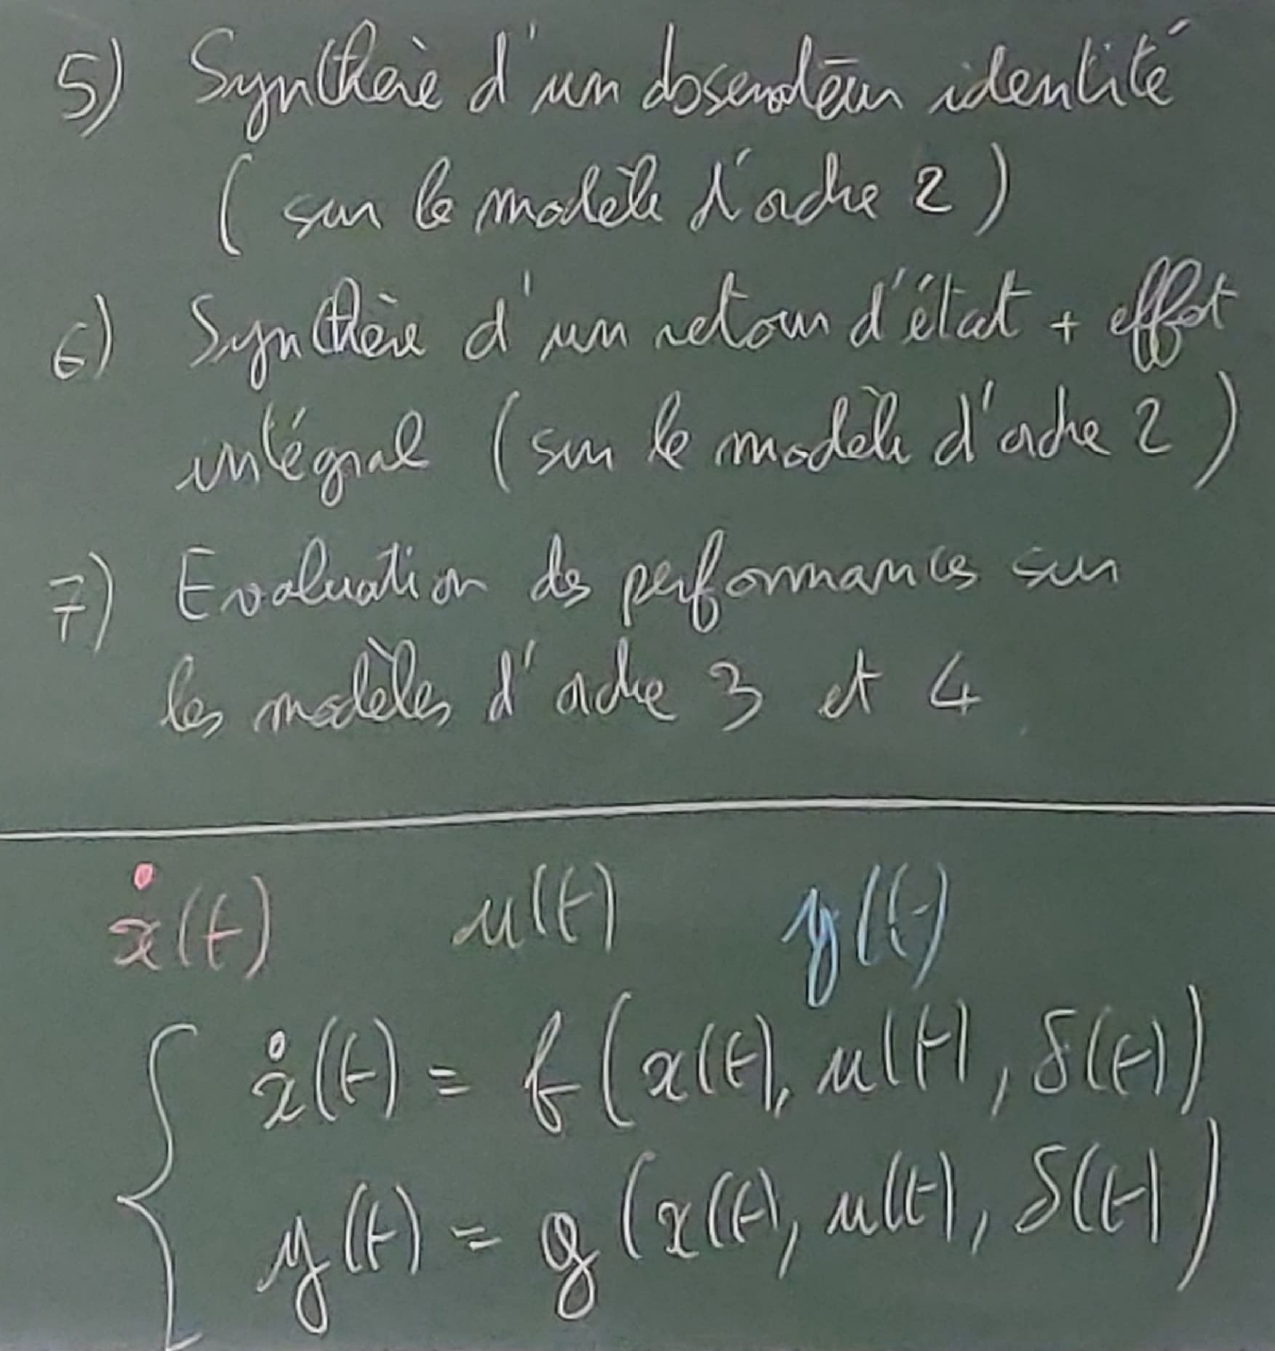 5) Synthèse d'un observateur identité
( sur le modèle d'ordre 2 )
6) Synthèse d'un retour d'état + effet
intégral ( sur le modèle d'ordre 2 )
7) Evaluation des performances sur
les modèles d'ordre 3 et 4
ẋ(t) u(t) y(t)
{ ẋ(t) = f(x(t), u(t), δ(t))
y(t) = g(x(t), u(t), δ(t))